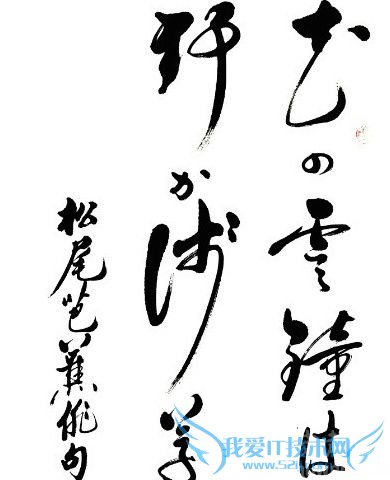 花の雲鐘は
野か浅草
松尾芭蕉俳句
我爱IT技术网